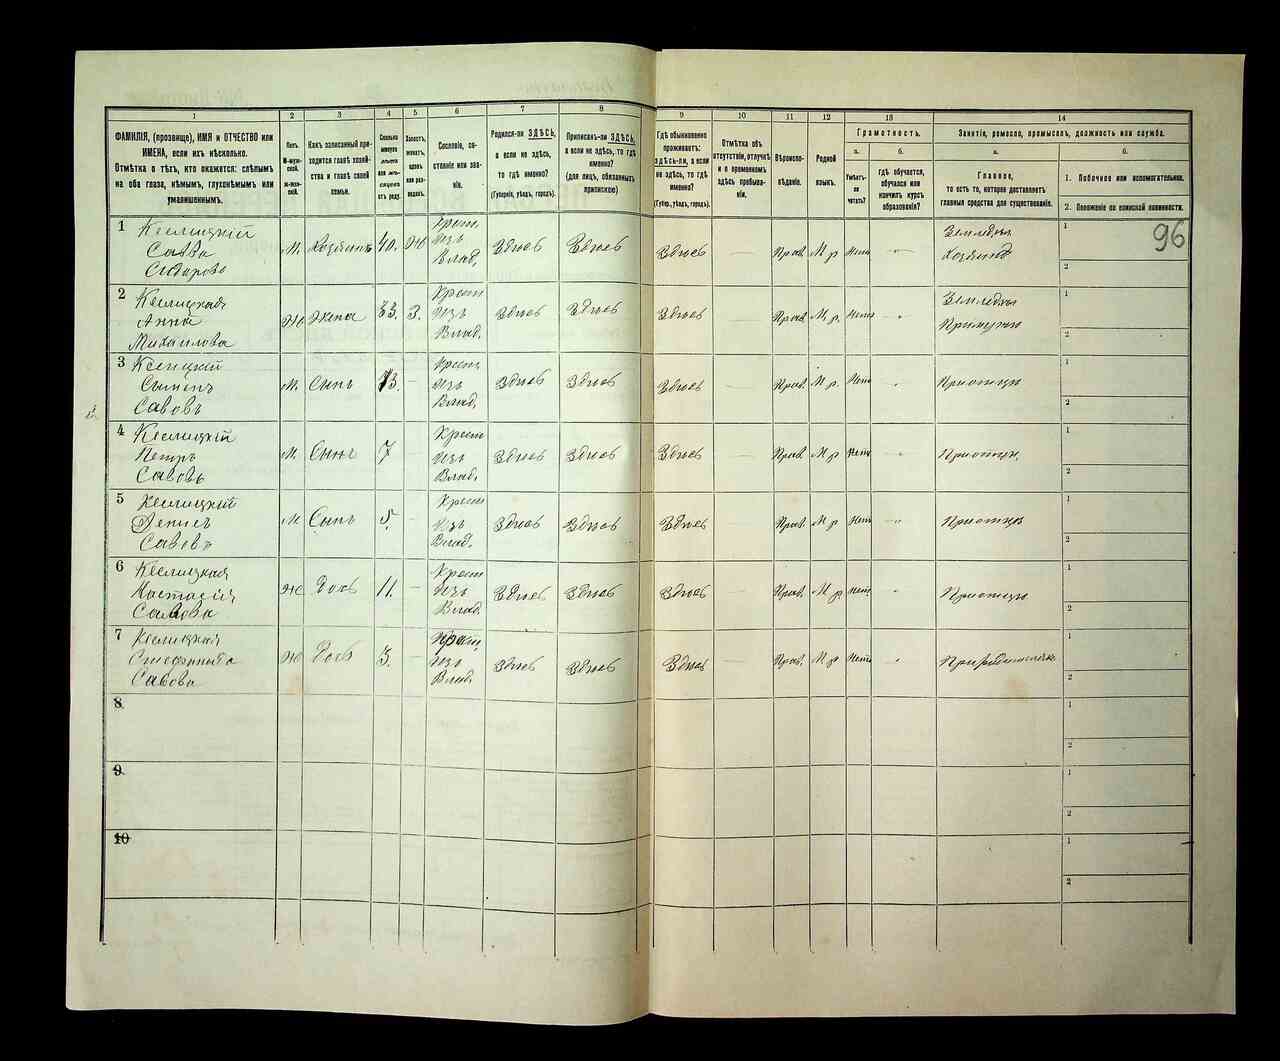 1 2 3 4 5 6 7 8 9 10 11 12 13 14
ФАМИЛІЯ, (прозвище), ИМЯ и ОТЧЕСТВО или
ИМЕНА, если ихъ нѣсколько.
Отмѣтка о тѣхъ, кто окажется: слѣпымъ
на оба глаза, нѣмымъ, глухонѣмымъ или
умалишеннымъ.
Полъ.
М-муж-
ской.
Ж-жен-
скій.
Какъ записанный при-
ходится главѣ хозяй-
ства и главѣ своей
семьи.
Сколько
минуло
лѣтъ
или мѣся-
цевъ
отъ роду.
Холостъ,
женатъ,
вдовъ
или раз-
веденъ.
Сословіе, со-
стояніе или зва-
ніе.
Родился-ли ЗДѢСЬ,
а если не здѣсь,
то гдѣ именно?
(Губернія, уѣздъ, городъ).
Приписанъ-ли ЗДѢСЬ,
а если не здѣсь, то гдѣ
именно?
(для лицъ, обязанныхъ
припискою)
Гдѣ обыкновенно
проживаетъ:
здѣсь-ли, а если
не здѣсь, то гдѣ
именно?
(Губер., уѣздъ, городъ).
Отмѣтка объ
отсутствіи, отлучкѣ
и о временномъ
здѣсь пребыва-
ніи.
Вѣроиспо-
вѣданіе.
Родной
языкъ.
Грамотность.
а.
Умѣетъ-
ли
читать?
б.
Гдѣ обучается,
обучался или
кончилъ курсъ
образованія?
Занятіе, ремесло, промыселъ, должность или служба.
а.
Главное,
то есть то, которое доставляетъ
главныя средства для существованія.
б.
1. Побочное или вспомогательное.
2. Положеніе по воинской повинности.
96
1 Кеслицкій
Савва
Сидоровъ
М. Хозяинъ 40. Ж
Крест
изъ
Влад.
Здѣсь Здѣсь Здѣсь — Прав. М р. Нет -"-
Земледѣл
Хозяинъ
1
2
2 Кеслицкая
Анна
Михайлова
Ж Жена 33. З.
Крест
изъ
Влад.
Здѣсь Здѣсь Здѣсь — Прав. М. р. Нет -"-
Земледѣл
При мужѣ
1
2
3 Кеслицкій
Савовъ
М. Сынъ 13. —
Крест
изъ
Влад,
Здѣсь Здѣсь Здѣсь — Прав. М р. Нет "
При отцѣ
1
2
4 Кеслицкій
Петръ
Савовъ
М. Сынъ 7 —
Крест
изъ
Влад.
Здѣсь Здѣсь Здѣсь — Прав. М р Нет -"-
При отцѣ
1
2
5 Кеслицкій
Денисъ
Савовъ
М Сынъ 5. —
Крест
изъ
Влад.
Здѣсь Здѣсь Здѣсь — Прав. М р Нет -"-
При отцѣ
1
2
6 Кеслицкая
Настасія
Савова
Ж Дочь 11. —
Крест
изъ
Влад.
Здѣсь Здѣсь Здѣсь — Прав. М р Нет "
При отцѣ
1
2
7 Кеслицкая
Савова
Ж Дочь 3. —
Крест.
изъ
Влад.
Здѣсь Здѣсь Здѣсь — Прав. М р Нет "
1
2
8
1
2
9
1
2
10
1
2